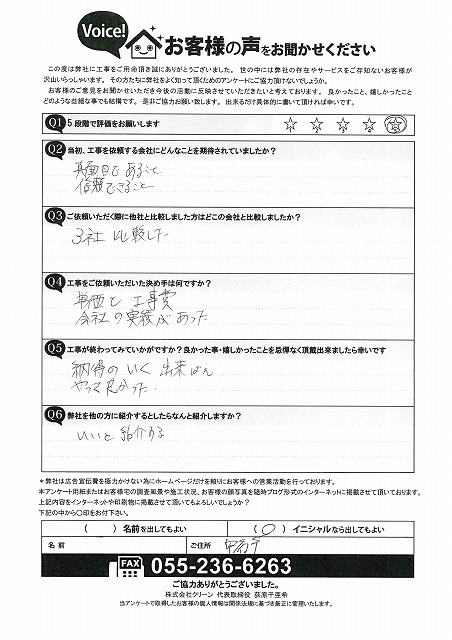 Voice!
お客様の声をお聞かせください
この度は弊社に工事をご用命頂き誠にありがとうございました。世の中には弊社の存在やサービスをご存知ないお客様が
沢山いらっしゃいます。その方たちに弊社をよく知って頂くためのアンケートにご協力頂けないでしょうか。
お客様のご意見をお聞かせいただき今後の活動に反映させていただきたいと考えております。良かったこと、嬉しかったこと
どのような些細な事でも結構です。是非ご協力お願い致します。出来るだけ具体的に書いて頂ければ幸いです。
Q1 5段階で評価をお願いします ☆ ☆ ☆ ☆ ☆
Q2 当初、工事を依頼する会社にどんなことを期待されていましたか?
真面目であること
信頼できること
Q3 ご依頼いただく際に他社と比較しました方はどこの会社と比較しましたか?
3社 比較した
Q4 工事をご依頼いただいた決め手は何ですか?
単価と工事費
会社の実績があった
Q5 工事が終わってみていかがですか?良かった事・嬉しかったことを忌憚なく頂戴出来ましたら幸いです
納得のいく 出来ばえ
やって良かった.
Q6 弊社を他の方に紹介するとしたらなんと紹介しますか?
いいと紹介する
*弊社は広告宣伝費を極力かけない為にホームページだけを頼りにお客様への営業活動を行っております。
本アンケート用紙またはお客様宅の調査風景や施工状況、お客様の顔写真を随時ブログ形式のインターネットに掲載させて頂いております。
上記内容をインターネットや印刷物に掲載させて頂いてもよろしいでしょうか?
下記の中から〇印をお付下さい。
( ) 名前を出してもよい (〇) イニシャルなら出してもよい
名前 ご住所 甲府市
FAX 055-236-6263
ご協力ありがとうございました。
株式会社クリーン 代表取締役 荻原千亜希
当アンケートで取得したお客様の個人情報は関係法規に基づき厳正に管理いたします。